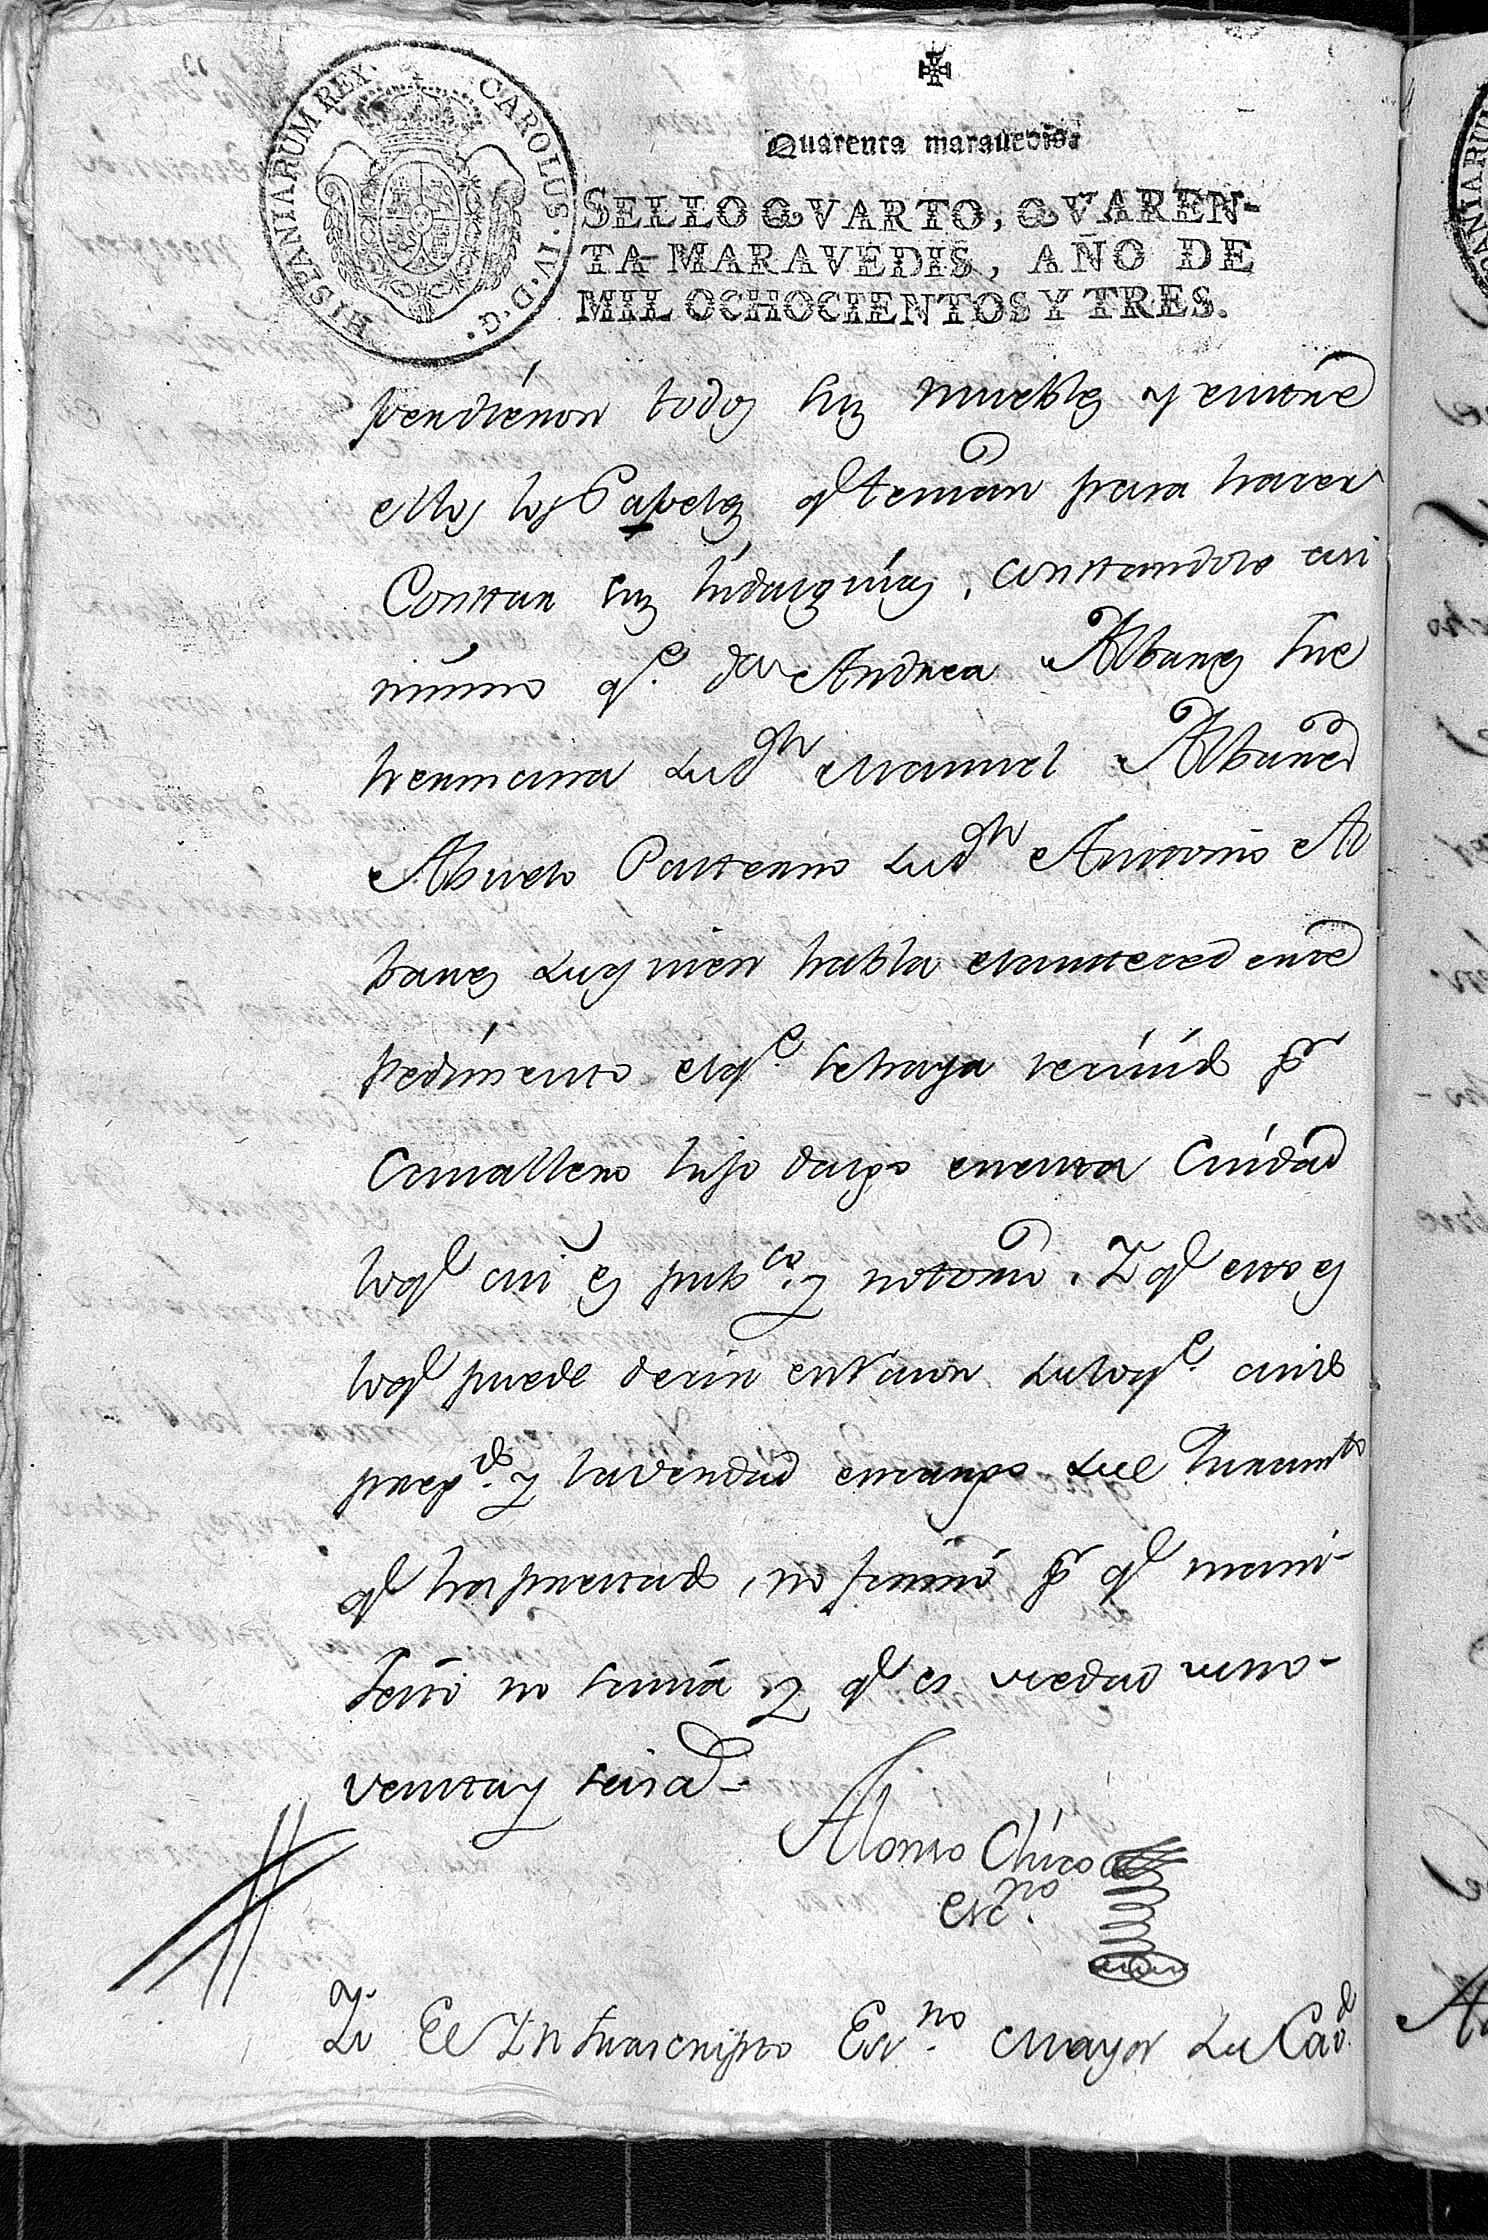 CAROLUS·IV·D·G· HISPANIARUM REX·
Quarenta maravedis.
SELLO QVARTO, QVAREN-
TA MARAVEDIS, AÑO DE
MIL OCHOCIENTOS Y TRES.
perdieron todos sus muebles y entre
ellos los Papeles q.e tenian para hacer
Constar sus hidalguias, constandole asi
mismo q.e D.a Andrea Albanes fue
hermana de D.n Manuel Albanes
Abuelo Paterno de D.n Antonio Al
banes de quien habla el antecedente
pedimento el q.e se haya recivido p.r
Cavallero hijo dalgo en esta Ciudad
lo q.e asi es pub.co y notorio. Y q.e esto es
lo q.e puede decir en razon de lo q.e a sido
preg.do y la verdad en cargo de el Juram.to
q.e ha prestado, no firmó p.r q.e mani-
festó no savia y q.e es de edad de no-
venta y seis a.s
Alonso Chico
esc.no
Yo El Infrascripto Es.no Mayor de Cav.do